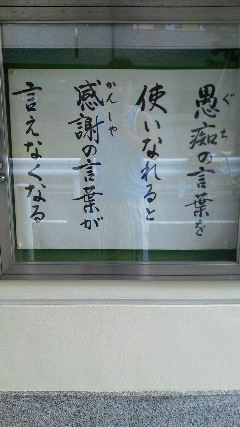 愚痴の言葉を
ぐち
使いなれると
感謝の言葉が
かんしゃ
言えなくなる